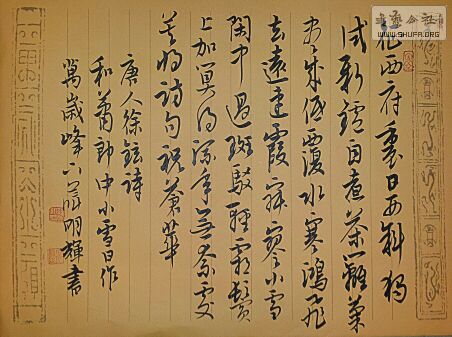 征西府裏日西斜獨
試新爐自煮茶籬菊
盡來低覆水寒鴻飛
去遠連霞寂寥小雪
閑中過斑駁輕霜鬢
上加算得流年無奈處
莫將詩句祝蒼華
唐人徐鉉詩
和蕭郎中小雪日作
萬歲峰下明輝書
WWW.SHUFA.ORG